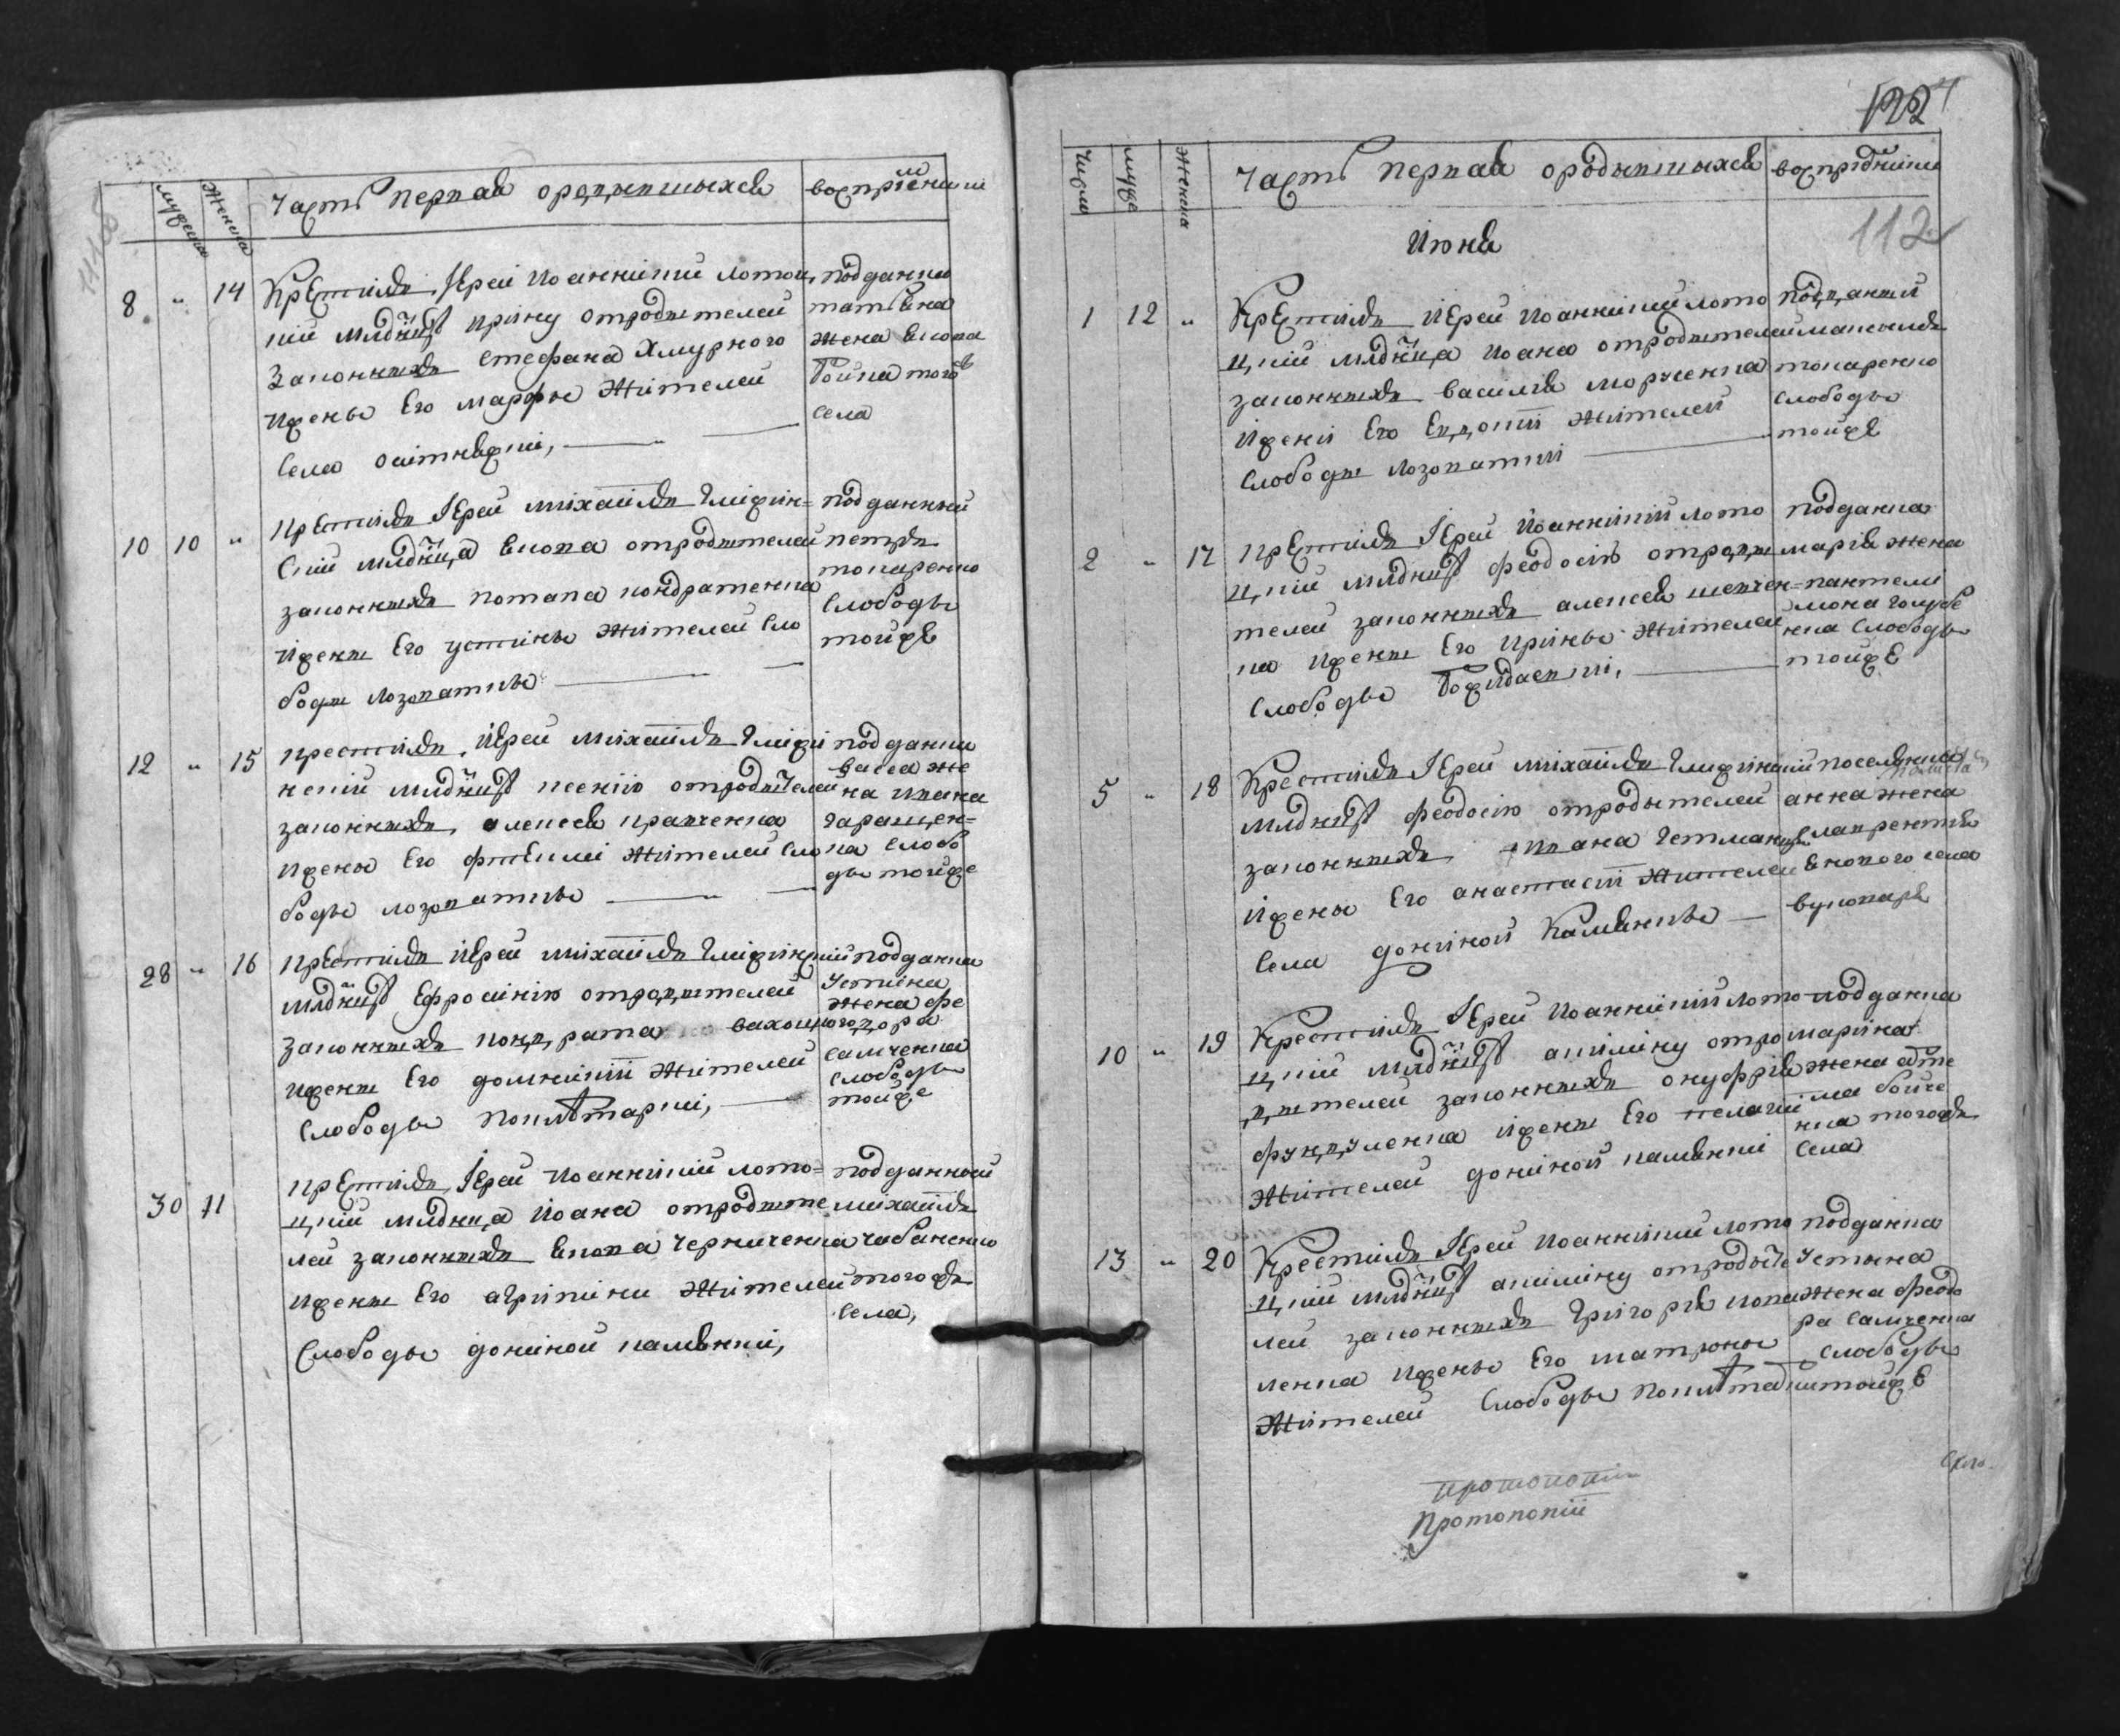 мужеска
Женска
Часть первая ородившыхся
восприемни
8 " 14
Крестилъ Іерей Иоанникий лотоц,
кий младенцу ирину отродителей
Законныхъ стефана Хмурного
ижены его марфы Жителей
села оситняжки,
подданна
татияна
жена Якова
Бойка того
села
10 10 "
крестилъ Іерей михаилъ Глижин=
ский младенца Якова отродителей
законныхъ потапа кондратенка
ижены его устины Жителей сло
боды лозоватки
подданный
петръ
токаренко
слободы
тойже
12 " 15
крестилъ Иерей михаилъ Глижи
нский младенцу ксению отродителей
законныхъ, алексея кравченка
ижены его Жителей сло
боды лозоватки
подданна
васса же
на ивана
гаращен=
ка слобо
ды тойже
28 " 16
крестилъ Иерей михаилъ Глижинский
младенцу Ефросинию отродителей
законныхъ кондрата
ижены его домникии Жителей
слободы Копитарки,
подданна
устина
жена фе
одора
самченка
слободы
тойже
30 11
крестилъ Іерей Иоанникий лото=
цкий младенца Иоана отродите
лей законныхъ Якова черниченка
ижены его агрипини Жителей
Слободы дониной камянки,
подданной
михаилъ
чабаненко
тогожъ
села,
122
112
Число
мужеска
Женска
Часть первая ородившыхся
восприемники
Июня
1 12 "
Крестилъ Иерей Иоанникий лото
цкий младенца Иоана отродителей
законныхъ василия марченка
ижени его Евдокии Жителей
слободы лозоватки
подданый
максимъ
токаренко
слободы
тойже
2 " 17
крестилъ Іерей Иоанникий лото
цкий младенцу феодосию отроди
телей законныхъ алексея шевчен=
ка ижены его ирины Жителей
слободы Бождаевки,
подданна
мария жена
пантели
мона голубе
нка слободы
тойже
5 " 18
Крестилъ Іерей михаилъ Глижинский
младенцу феодосию отродителей
законныхъ ивана гетманца
ижены его анастасии Жителей
села дониной Камянки
поселянка
анна жена
лаврентия
Якового села
вуковаря
10 " 19
Крестилъ Іерей Иоанникий лото
цкий младенцу акилину отро
дителей законныхъ онуфрия
фундуленка ижены его пелагии
Жителей дониной камянки
подданна
марина
жена арте
ма бойче
нка тогожъ
села
13 " 20
Крестилъ Іерей Иоанникий лото
цкий младенцу акилину отродите
лей законныхъ григория кова
ленка ижены его матроны
Жителей слободы Копита
подданна
устина
жена феодо
ра самченка
слободы
тойже
Протопопий